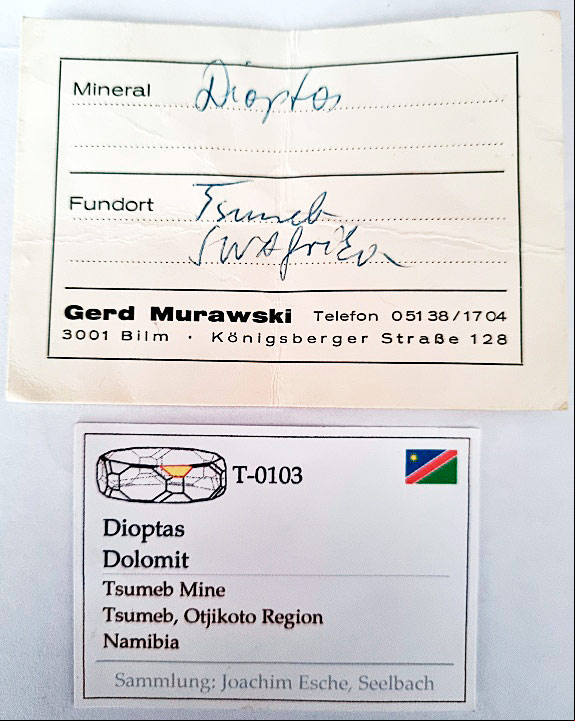 Mineral Dioptas
Fundort Tsumeb
SWAfrika
Gerd Murawski Telefon 05138/1704
3001 Bilm · Königsberger Straße 128
T-0103
Dioptas
Dolomit
Tsumeb Mine
Tsumeb, Otjikoto Region
Namibia
Sammlung: Joachim Esche, Seelbach